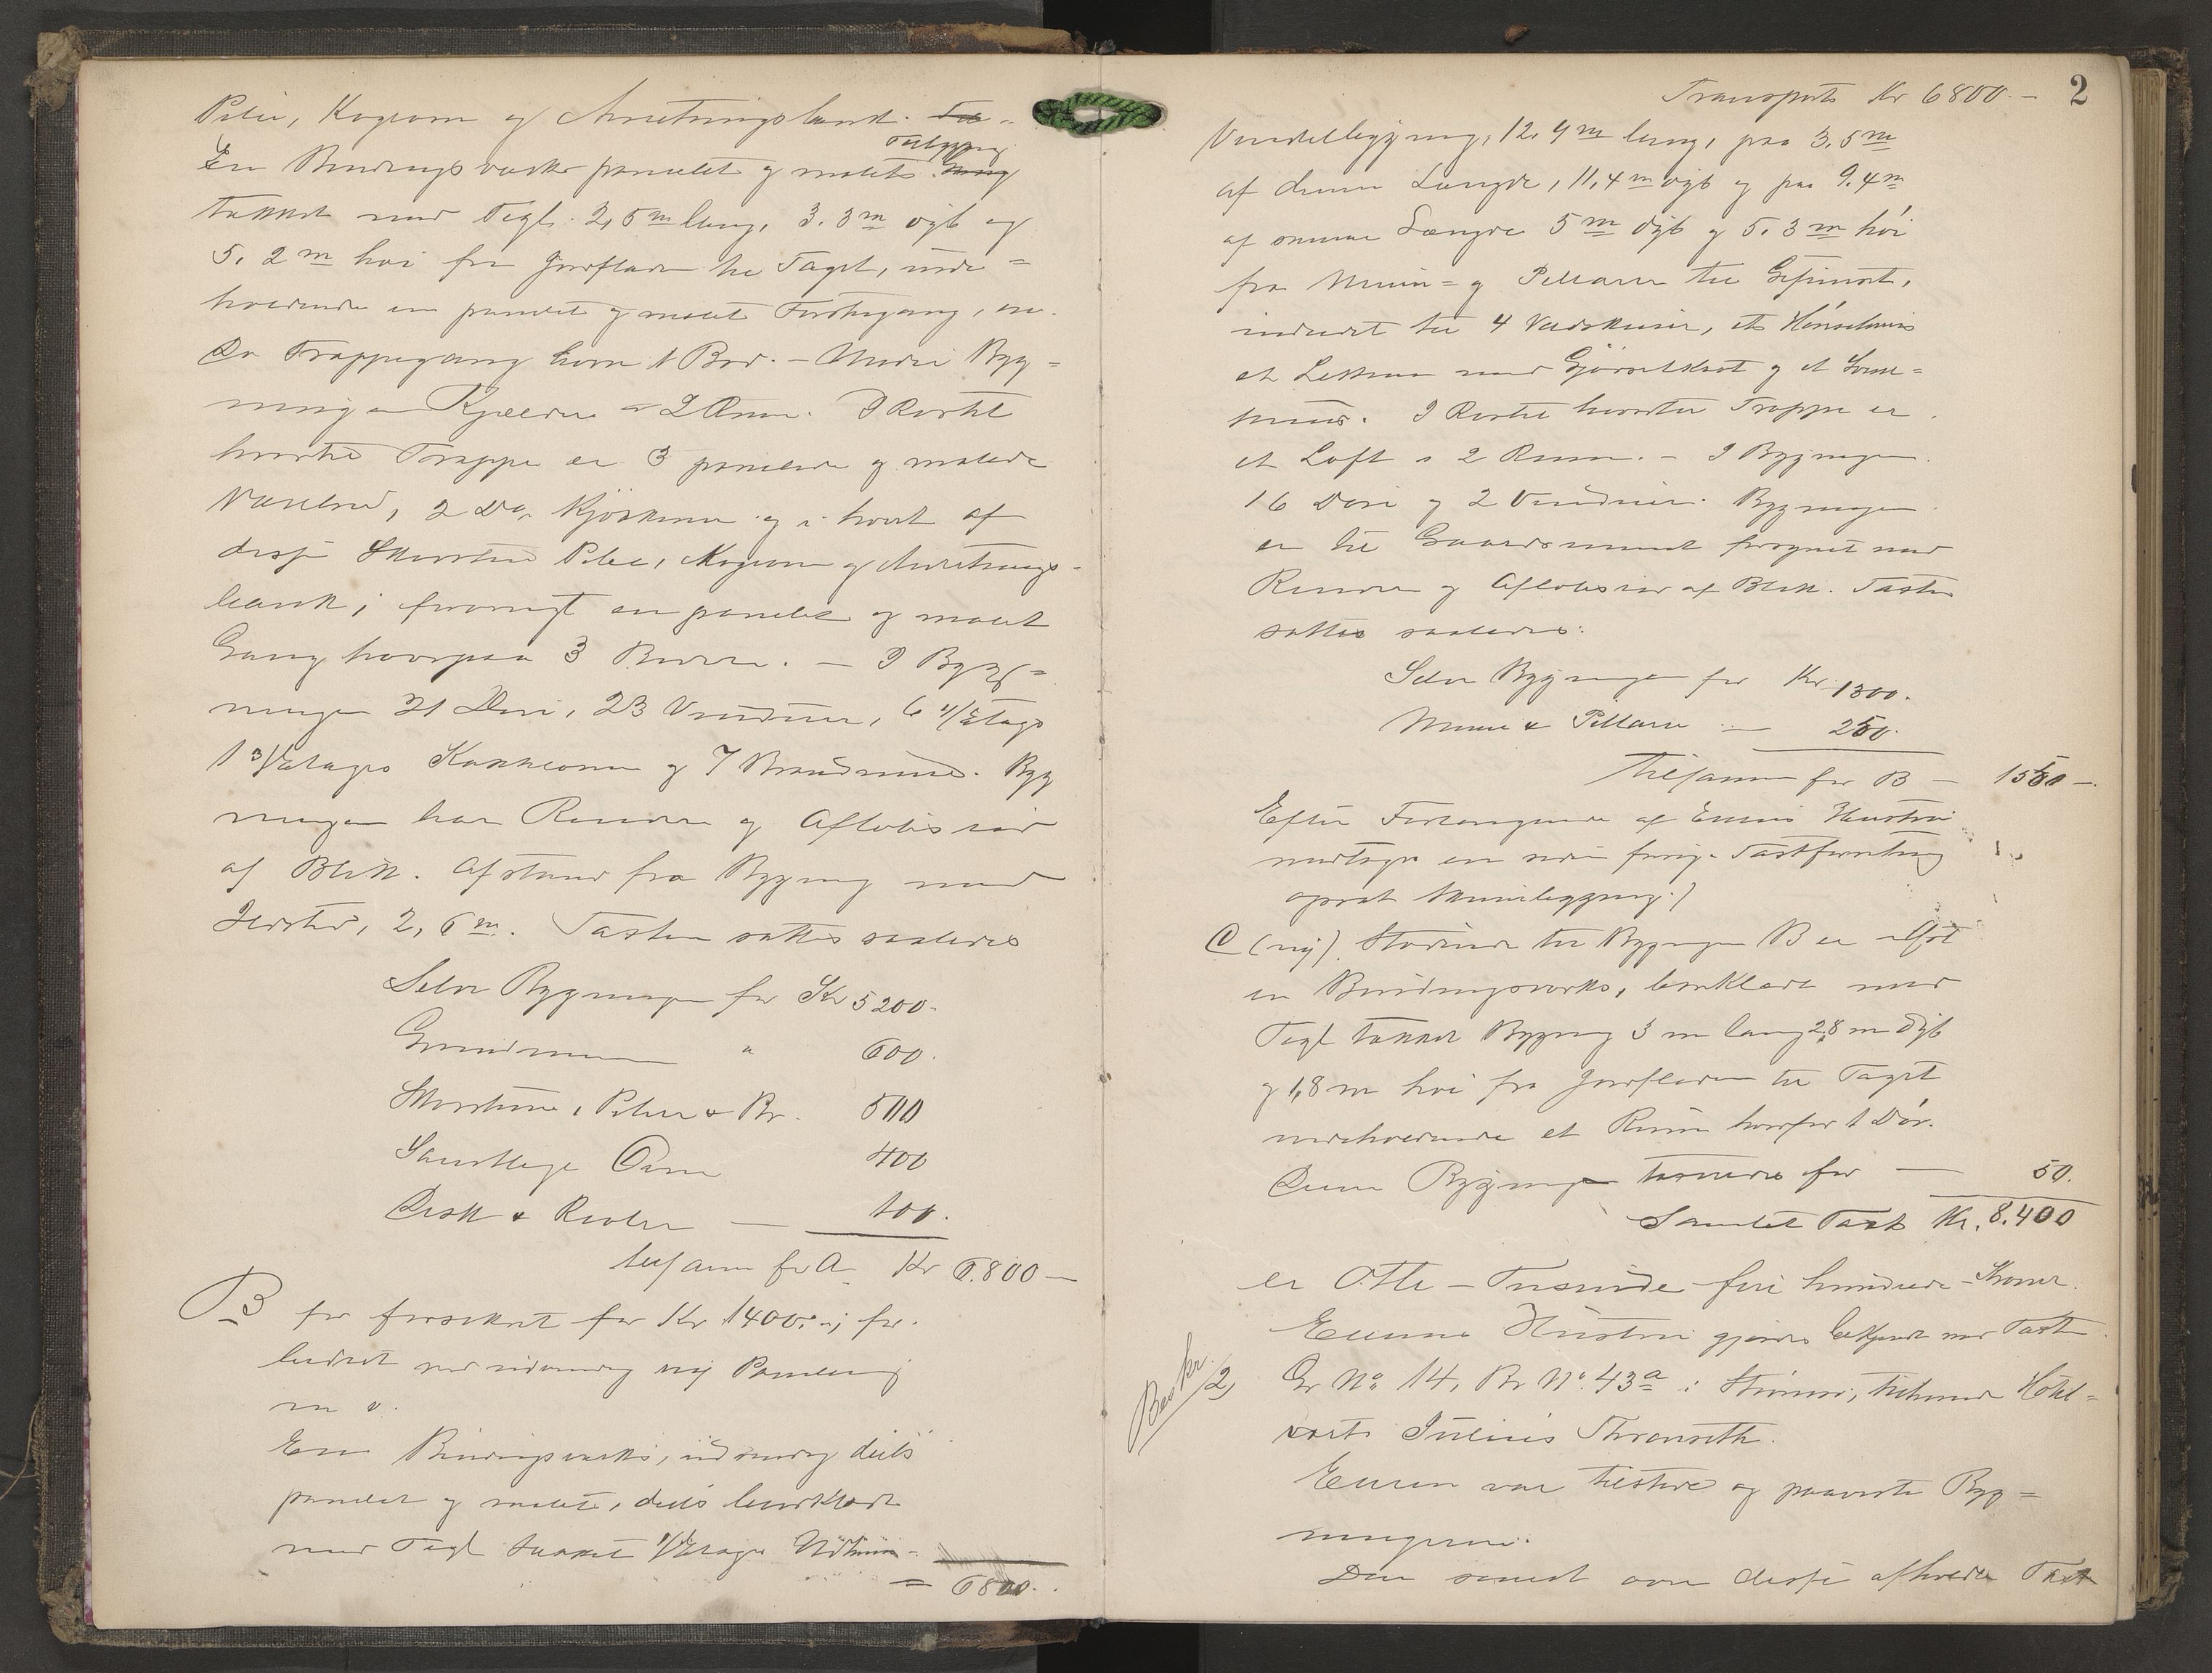 Piber, Kogeovn og Anretningsbænk.
En Bindingsværks panelet og malet Tilbygning
tækket med Tegl. 2,5 m lang, 3.3 m dyb og
5.2 m høi fra Jordfladen til Taget, inde=
holdende en panelet og malet Forstugang, en
Do Trappegang hvori 1 Bod. – Under Byg=
ningen Kjælder a 2 Rum. I Kvistet
hvortil Trappe er 3 panelede og malede
Værelser, 2 Do. Kjøkkener og i hvert af
disse Skorsten Pibe, Kogeovn og Anretnings-
bænk; forøvrigt en panelet og malet
Gang hvorpaa 3 Boder. – I Byg=
ningen 21 Døre, 23 Vinduer, 6 1/Etages
1 3/Etages Kakkelovne og 7 Brandmure. Byg
ningen har Render og Afløbsrør
af Blik. Afstand fra Bygning med
Ildsted, 2,6 m. Taxten sattes saaledes
Selve Bygningen for Kr 5200.
Grundmuren " 600.
Skorstene, Piber & Br. 500
Samtlige Ovne 400
Disk & Reoler — 100.
tilsammen for A Kr 6.800 —
B før forsikret for Kr 1400.-; for-
bedret ved udvendig ny Paneling
m v.
En Bindingsværks, udvendig deels
panelet og malet, deels bordklædt
med Tegl tækket 1/Etages Udhuus-
= 6800.
Transport Kr 6800.— 2
Vinkelbygning, 12.4 m lang, paa 3,5 m
af denne Længde, 11,4 m dyb og paa 9.4 m
af samme Længde 5 m dyb og 5.3 m høi
fra Muur= og Pillarer til Gesimset,
indredet til 4 Vedskuur, et Hønsehuus
et Lokum med Gjødselkast og et
I Kvistet hvortil Trappe er
et Loft a 2 Rum. – I Bygningen
16 Døre og 2 Vinduer. Bygningen
er til Gaardsrummet forsynet med
Render og Afløbsrør af Blik. Taxten
sattes saaledes:
Selve Bygningen for Kr. 1300.
Mure & Pillarer — 250.
Tilsammen for B — 1550 —.
Efter Forlangende af Eieres Hustru
C (ny). Stødende til Bygningen B er
en Bindingsværks, bordklædt med
Tegl tækket Bygning 3 m lang 2,8 m dyb
og 1,8 m høi fra Jordfladen til Taget
indeholdende et Rum hvorfor 1 Dør.
Denne Bygningen taxeredes for — 50.
Samlet Taxt Kr. 8.400
er Otte – Tusinde – fire hundrede – Kroner.
Eierens Hustru gjordes bekjendt med Taxten.
Beskr. 2, Gr No. 14, Br No. 43 a i Strømsø, tilhørende Hotel=
vært Julius Thranseth.
Eieren var tilstede og paaviste Byg=
ningerne.
Den senest over disse afholdte Taxt